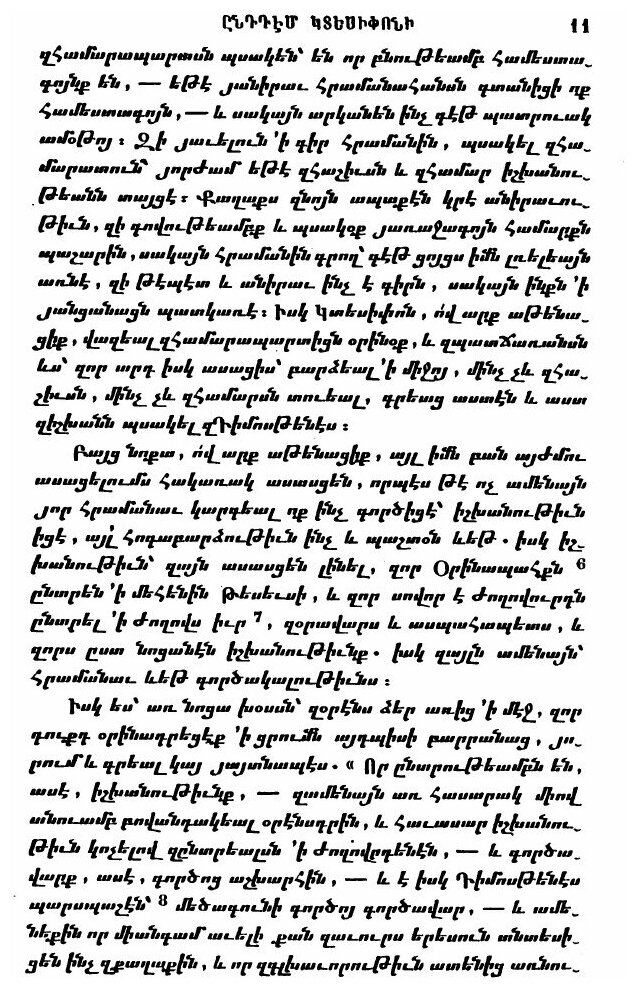 ԸՆԴԴԷՄ ԿՏԵՍԻՓՈՆԻ 11
զՀամարապարտսն պսակեն՝ են որ բնութեամբ Համեստա֊
գոյնք են, — եթէ յանիրաւ Հրամանահանսն գտանիցի ոք
Համեստագոյն, — և սակայն արկանեն ինչ գէթ պատրուակ
ամօթոյ ։ Զի յաւելուն 'ի գիր Հրամանին, պսակել զՀա֊
մարատուն՝ յորժամ եթէ զհաշիւսն և զհամար իշխանու֊
թեանն տայցէ ։ Քաղաքս զնոյն ապաքէն կրէ անիրաւու֊
թիւն, զի գովութեամբք և պսակօք յառաջագոյն Համարքն
պաշարին, սակայն Հրամանին գրող՝ գէթ ցոյցս իմն լռելեայն
առնէ, զի թէպետ և անիրաւ ինչ է գիրն, սակայն ինքն 'ի
յանցանացն պատկառէ ։ Իսկ Կտեսիփոն, ո՛վ արք աթենա֊
ցիք, վազեալ զՀամարապարտիցն օրինօք, և զպատճառանսն
ևս՝ զոր արդ իսկ ասացիս՝ բարձեալ 'ի միջոյ, մինչ չև զհա֊
շիւսն, մինչ չև զհամարսն տուեալ, գրեաց աստէն և աստ
զիշխանն պսակել զԴիմոսթենէս ։
Բայց նոքա, ո՛վ արք աթենացիք, այլ իմն բան այժմու
ասացելումս հակառակ ասասցեն, որպէս թէ ոչ ամենայն
յոր Հրամանաւ կարգեալ ոք ինչ գործիցէ՝ իշխանութիւն
իցէ, այլ հոգաբարձութիւն ինչ և պաշտօն ևեթ. իսկ իշ֊
խանութիւն՝ զայն ասասցեն լինել, զոր Օրինապահքն 6
ընտրեն 'ի մեհենին Թեսեւսի, և զոր սովոր է ժողովուրդն
ընտրել 'ի ժողովս իւր 7, զօրավարս և ասպահապետս, և
զորս ըստ նոցանէն իշխանութիւնք. իսկ զայլն ամենայն՝
Հրամանաւ ևեթ գործակալութիւնս ։
Իսկ ես՝ առ նոցա խօսսն՝ զօրէնս ձեր առից 'ի մէջ, զոր
դուքդ օրինադրեցէք 'ի ցրումն այդպիսի բարբանաց, յո֊
րում և գրեալ կայ յայտնապէս. « Որ ընտրութեամբն են,
ասէ, իշխանութիւնք, — զամենայն առ հասարակ միով
անուամբ բովանդակեալ օրէնսդրին, և հաւասար իշխանու֊
թիւն կոչելով զընտրեալսն 'ի ժողովրդենէն, — և գործա֊
վարք, ասէ, գործոց աշխարհին, — և է իսկ Դիմոսթենէս
պարսպաշէն՝ 8 մեծագունի գործոյ գործավար, — և ամե֊
նեքին որ միանգամ աւելի քան զաւուրս երեսուն անտեսի֊
ցեն ինչ զքաղաքին, և որ զգլխաւորութիւն ատենից առնու֊